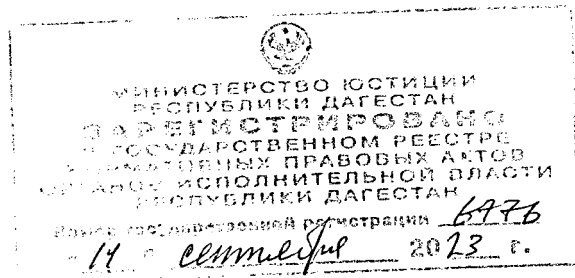 МИНИСТЕРСТВО ЮСТИЦИИ
РЕСПУБЛИКИ ДАГЕСТАН
ЗАРЕГИСТРИРОВАНО
В ГОСУДАРСТВЕННОМ РЕЕСТРЕ
НОРМАТИВНЫХ ПРАВОВЫХ АКТОВ
ОРГАНОВ ИСПОЛНИТЕЛЬНОЙ ВЛАСТИ
РЕСПУБЛИКИ ДАГЕСТАН
Номер государственной регистрации 6976
" 14 " сентября 2023 г.